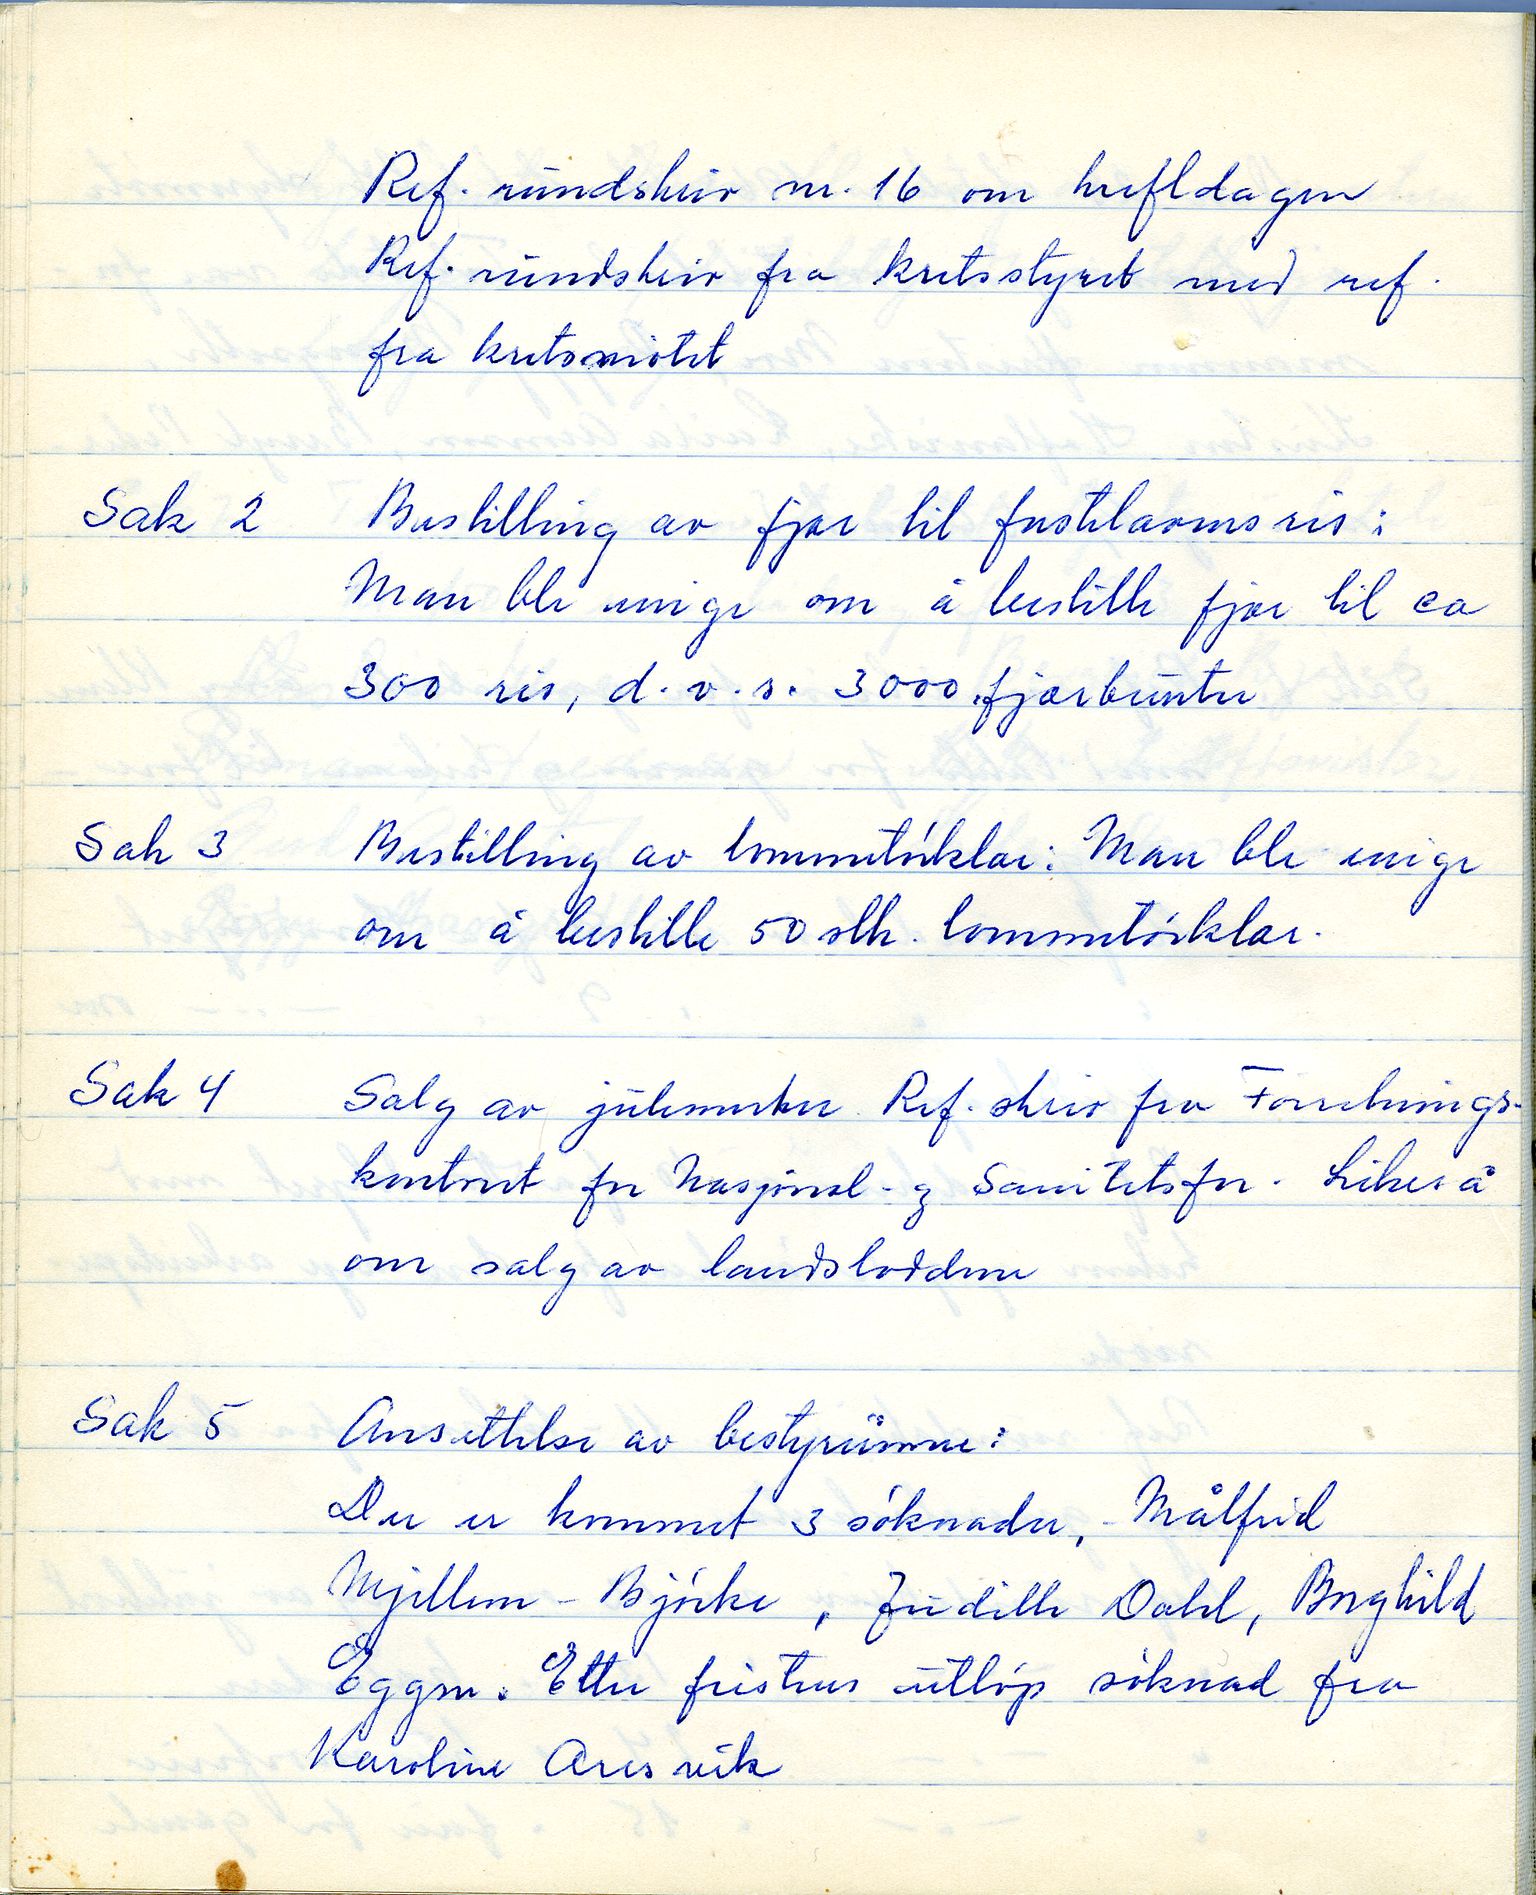 Ref. rundskriv nr. 16 om kreftdagen
Ref. rundskriv fra kretsstyret med ref.
fra kretsmötet
Sak 2 Bestilling av fjær til fastelavnsris:
Man ble enige om å bestille fjær til ca
300 ris, d.v.s. 3000 fjærbunter
Sak 3 Bestilling av lommetörklær: Man ble enige
om å bestille 50 stk. lommetörklær.
Sak 4 Salg av julemerker. Ref. skriv fra Forretnings-
kontoret for Nasjonal- og Sanitetsfor. Likeså
om salg av landsloddene
Sak 5 Ansettelse av bestyrerinne:
Der er kommet 3 söknader, Målfrid
Mjellem-Björke, Judithe Dahl, Borghild
Eggen. Etter fristens utlöp söknad fra
Karoline Aresvik